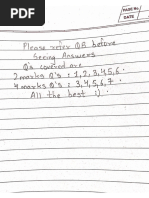 PAGE No.
DATE
Please refer QB before
Seeing Answers
Q's covered are
2 marks Q's : 1, 2, 3, 4, 5, 6.
4 marks Q's : 3, 4, 5, 6, 7.
All the best :)